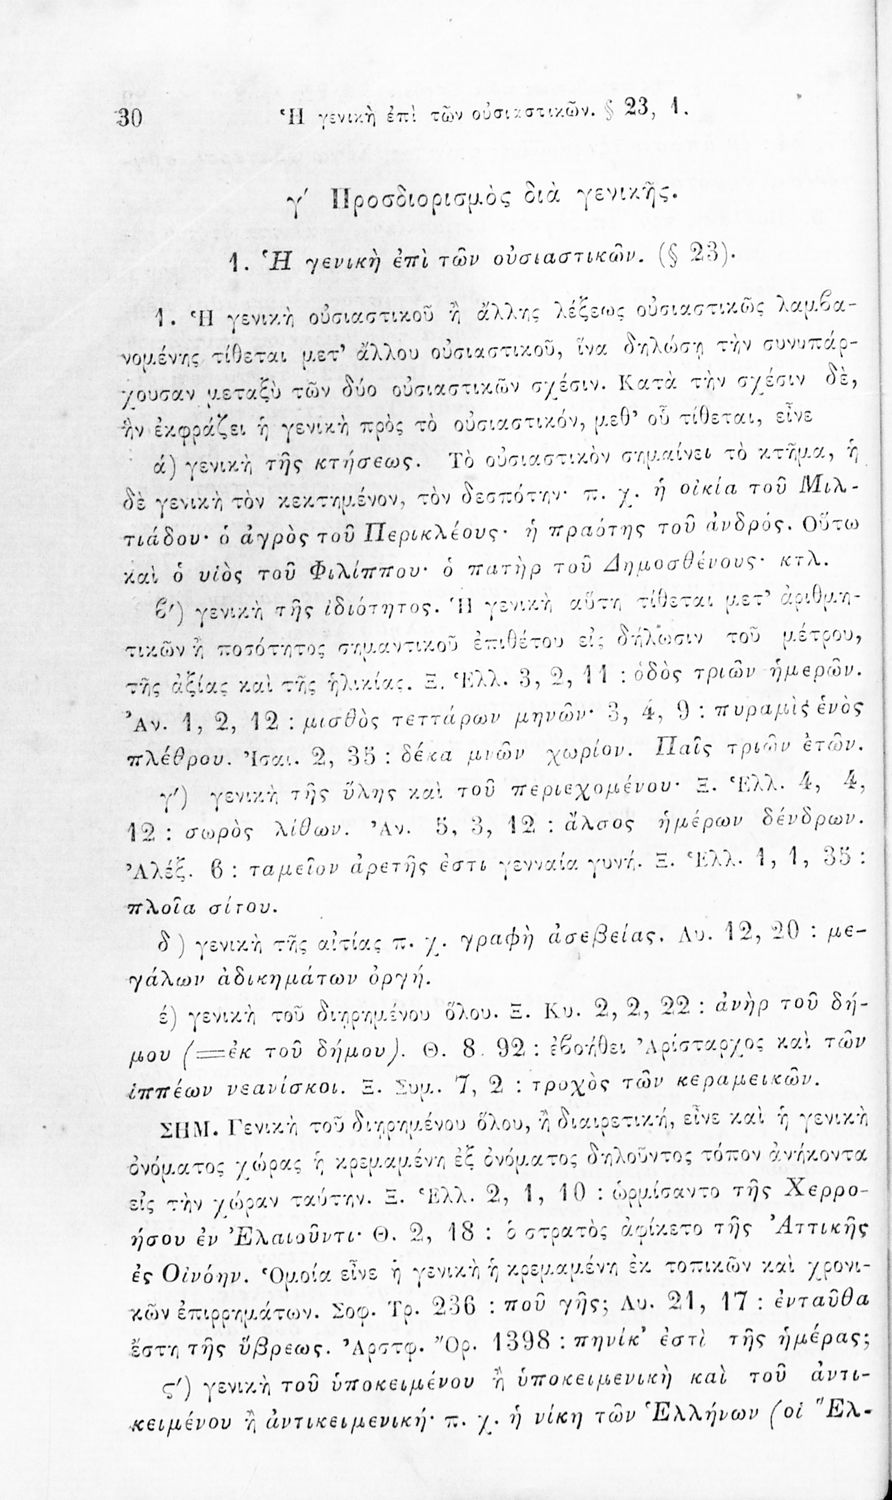 30 Ἡ γενικὴ ἐπὶ τῶν οὐσιαστικῶν. § 23, 1.
γ′ Προσδιορισμὸς διὰ γενικῆς.
1. Ἡ γενικὴ ἐπὶ τῶν οὐσιαστικῶν. (§ 23).
1. Ἡ γενικὴ οὐσιαστικοῦ ἢ ἄλλης λέξεως οὐσιαστικῶς λαμβα-
νομένης τίθεται μετ’ ἄλλου οὐσιαστικοῦ, ἵνα δηλώσῃ τὴν συνυπάρ-
χουσαν μεταξὺ τῶν δύο οὐσιαστικῶν σχέσιν. Κατὰ τὴν σχέσιν δὲ,
ἣν ἐκφράζει ἡ γενικὴ πρὸς τὸ οὐσιαστικόν, μεθ’ οὗ τίθεται, εἶνε
ά) γενικὴ τῆς κτήσεως. Τὸ οὐσιαστικὸν σημαίνει τὸ κτῆμα, ἡ
δὲ γενικὴ τὸν κεκτημένον, τὸν δεσπότην· π. χ. ἡ οἰκία τοῦ Μιλ-
τιάδου· ὁ ἀγρὸς τοῦ Περικλέους· ἡ πραότης τοῦ ἀνδρός. Οὕτω
καὶ ὁ υἱὸς τοῦ Φιλίππου· ὁ πατὴρ τοῦ Δημοσθένους· κτλ.
β′) γενικὴ τῆς ἰδιότητος. Ἡ γενικὴ αὕτη τίθεται μετ’ ἀριθμη-
τικῶν ἢ ποσότητος σημαντικοῦ ἐπιθέτου εἰς δήλωσιν τοῦ μέτρου,
τῆς ἀξίας καὶ τῆς ἡλικίας. Ξ. Ἑλλ. 3, 2, 11 : ὁδὸς τριῶν ἡμερῶν.
Ἀν. 1, 2, 12 : μισθὸς τεττάρων μηνῶν· 3, 4, 9 : πυραμὶς ἑνὸς
πλέθρου. Ἰσαι. 2, 35 : δέκα μνῶν χωρίον. Παῖς τριῶν ἐτῶν.
γ′) γενικὴ τῆς ὕλης καὶ τοῦ περιεχομένου· Ξ. Ἑλλ. 4, 4,
12 : σωρὸς λίθων. Ἀν. 5, 3, 12 : ἄλσος ἡμέρων δένδρων.
Ἀλέξ. 6 : ταμεῖον ἀρετῆς ἐστι γενναία γυνή. Ξ. Ἑλλ. 1, 1, 35 :
πλοῖα σίτου.
δ) γενικὴ τῆς αἰτίας π. χ. γραφὴ ἀσεβείας. Λυ. 12, 20 : με-
γάλων ἀδικημάτων ὀργή.
έ) γενικὴ τοῦ διῃρημένου ὅλου. Ξ. Κυ. 2, 2, 22 : ἀνὴρ τοῦ δή-
μου (=ἐκ τοῦ δήμου). Θ. 8. 92 : ἐβοήθει Ἀρίσταρχος καὶ τῶν
ἱππέων νεανίσκοι. Ξ. Συμ. 7, 2 : τροχὸς τῶν κεραμεικῶν.
ΣΗΜ. Γενικὴ τοῦ διῃρημένου ὅλου, ἢ διαιρετική, εἶνε καὶ ἡ γενικὴ
ὀνόματος χώρας ἡ κρεμαμένη ἐξ ὀνόματος δηλοῦντος τόπον ἀνήκοντα
εἰς τὴν χώραν ταύτην. Ξ. Ἑλλ. 2, 1, 10 : ὡρμίσαντο τῆς Χερρο-
ήσου ἐν Ἐλαιοῦντι· Θ. 2, 18 : ὁ στρατὸς ἀφίκετο τῆς Ἀττικῆς
ἐς Οἰνόην. Ὁμοία εἶνε ἡ γενικὴ ἡ κρεμαμένη ἐκ τοπικῶν καὶ χρονι-
κῶν ἐπιρρημάτων. Σοφ. Τρ. 236 : ποῦ γῆς; Λυ. 21, 17 : ἐνταῦθα
ἔστη τῆς ὕβρεως. Ἀρστφ. Ὄρ. 1398 : πηνίκ’ ἐστὶ τῆς ἡμέρας;
ς′) γενικὴ τοῦ ὑποκειμένου ἢ ὑποκειμενικὴ καὶ τοῦ ἀντι-
κειμένου ἢ ἀντικειμενική· π. χ. ἡ νίκη τῶν Ἑλλήνων (οἱ Ἕλ-